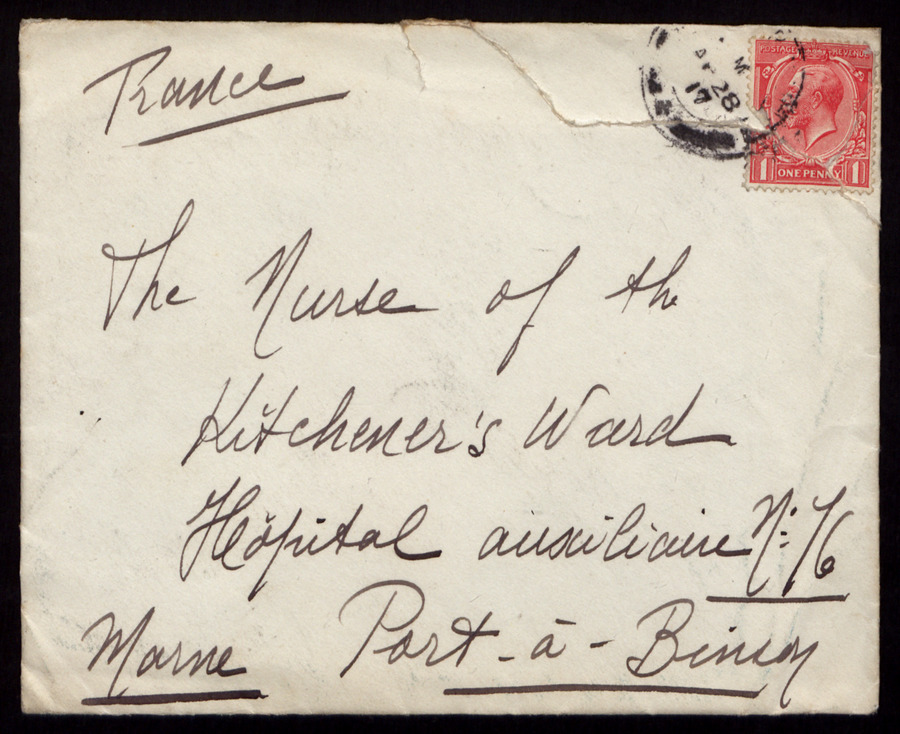 France
POSTAGE REVENUE
AP 28
17
1 ONE PENNY 1
The Nurse of the
Kitchener's Ward
Hôpital auxiliaire N: 76
Marne Port-à-Binson